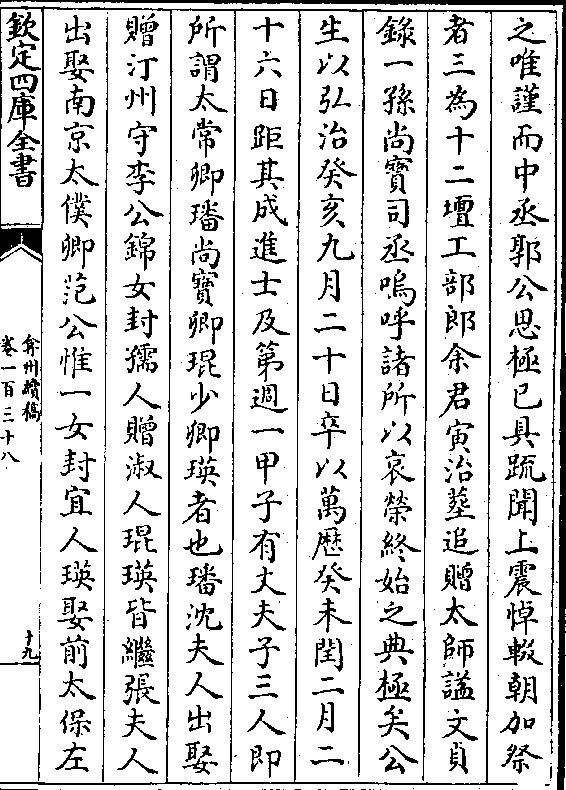 之唯謹而中丞郭公思極已具䟽聞上震悼輟朝加祭
者三為十二壇工部郎余君寅治塟追贈太師諡文貞
錄一孫尚寶司丞嗚呼諸所以哀榮終始之典極矣公
生以弘治癸亥九月二十日卒以萬歷癸未閏二月二
十六日距其成進士及第週一甲子有丈夫子三人即
所謂太常卿璠尚寶卿琨少卿瑛者也璠沈夫人出娶
贈汀州守李公錦女封孺人贈淑人琨瑛皆繼張夫人
出娶南京太僕卿范公惟一女封宜人瑛娶前太保左
欽定四庫全書
弇州續稿
卷一百三十八
十九